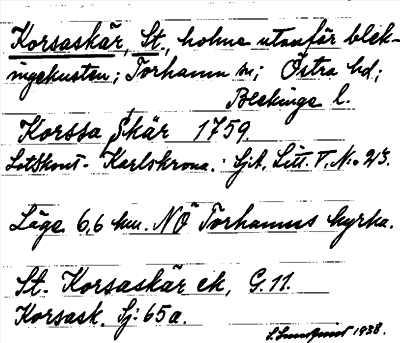 Korsaskär, St., holme utanför blek-
ingekusten; Torhamn sn; Östra hd;
Blekinge l.
Korssa Skär 1759
Lotskont. Karlskrona. SjA. Litt. V. No 23.
Läge 6,6 km. NÖ Torhamns kyrka.
St. Korsaskär ek, G.11.
Korsask. Sj: 65a.
1938.